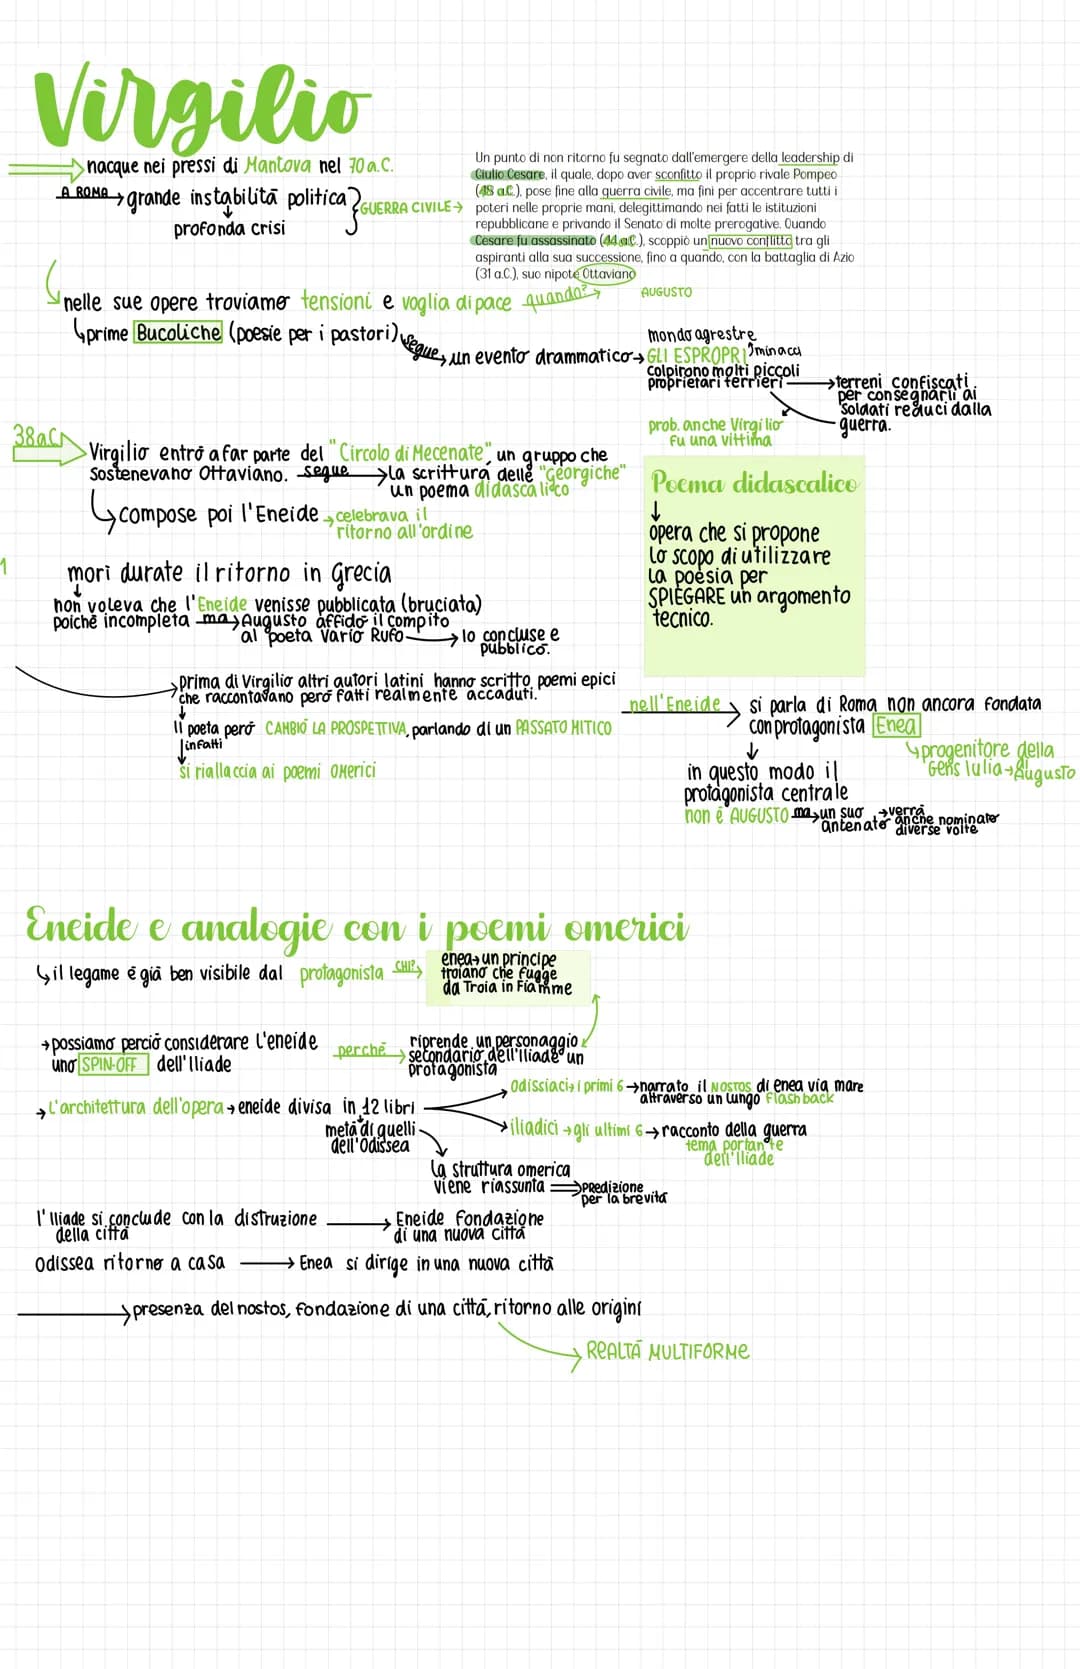 Virgilio
nacque nei pressi di Mantova nel 70 a.C.
A ROMA → grande instabilità politica
profonda crisi
GUERRA CIVILE →
Un punto di non ritorno fu segnato dall'emergere della leadership di
Giulio Cesare, il quale, dopo aver sconfitto il proprio rivale Pompeo
(48 a.C.), pose fine alla guerra civile, ma finì per accentrare tutti i
poteri nelle proprie mani, delegittimando nei fatti le istituzioni
repubblicane e privando il Senato di molte prerogative. Quando
Cesare fu assassinato (44 a.C.), scoppiò un nuovo conflitto tra gli
aspiranti alla sua successione, fino a quando, con la battaglia di Azio
(31 a.C.), suo nipote Ottaviano
AUGUSTO
nelle sue opere troviamo tensioni e voglia di pace quando? →
prime Bucoliche (poesie per i pastori)
segue → un evento drammatico →
mondo agrestre
GLI ESPROPRI minacci
colpirono molti piccoli
proprietari terrieri
→ terreni confiscati
per consegnarli ai
soldati reduci dalla
guerra.
prob. anche Virgilio
fu una vittima
38 a.C.
Virgilio entrò a far parte del "Circolo di Mecenate", un gruppo che
sostenevano Ottaviano. segue → la scrittura delle "georgiche"
un poema didascalico
compose poi l'Eneide → celebrava il
ritorno all'ordine
Poema didascalico
↓
opera che si propone
lo scopo di utilizzare
la poesia per
SPIEGARE un argomento
tecnico.
1
morì durate il ritorno in Grecia
↓
non voleva che l'Eneide venisse pubblicata (bruciata)
poiché incompleta ma → Augusto affidò il compito
al poeta Vario Rufo → lo concluse e
pubblicò.
prima di Virgilio altri autori latini hanno scritto poemi epici
che raccontavano però fatti realmente accaduti.
↓
Il poeta però CAMBIÒ LA PROSPETTIVA, parlando di un PASSATO MITICO
infatti
si riallaccia ai poemi omerici
nell'Eneide
si parla di Roma non ancora fondata
con protagonista Enea
progenitore della
Gens Iulia → Augusto
in questo modo il
protagonista centrale
non è AUGUSTO ma → un suo
antenato
→ verrà
anche nominato
diverse volte
Eneide e analogie con i poemi omerici
il legame è già ben visibile dal protagonista CHI? →
enea → un principe
troiano che fugge
da Troia in fiamme
→ possiamo perciò considerare l'eneide
uno SPIN-OFF dell'Iliade
perché →
riprende un personaggio
secondario dell'Iliade un
protagonista
→ L'architettura dell'opera → eneide divisa in 12 libri
metà di quelli
dell'Odissea
odissiaci → i primi 6 → narrato il NOSTOS di enea via mare
attraverso un lungo flashback
iliadici → gli ultimi 6 → racconto della guerra
tema portante
dell'Iliade
la struttura omerica
viene riassunta ⇒ PRedizione
per la brevità
l'Iliade si conclude con la distruzione
della città
→ Eneide fondazione
di una nuova città
Odissea ritorno a casa → Enea si dirige in una nuova città
→ presenza del nostos, fondazione di una città, ritorno alle origini
REALTÀ MULTIFORME